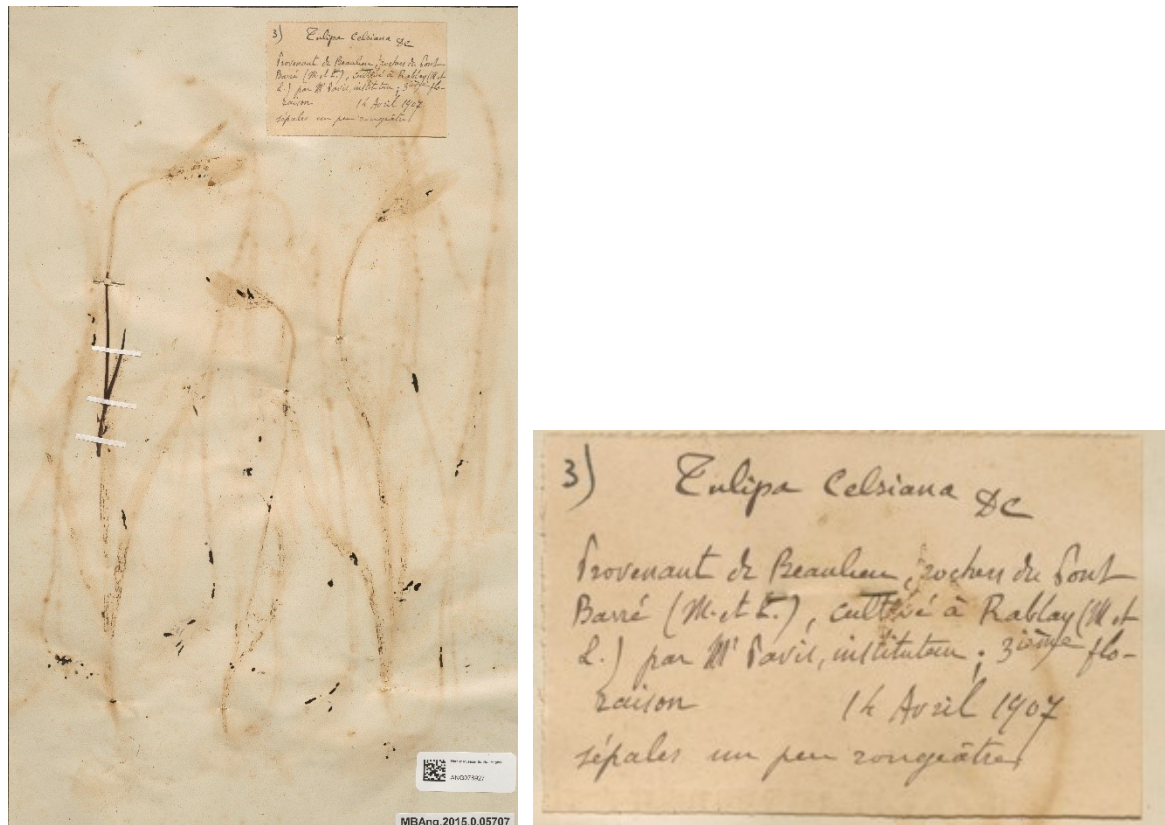 3) Tulipa Celsiana DC
Provenant de Beaulieu, rochers du Pont
Barré (M. et L.), cultivé à Rablay (M et
L.) par Mr Pavis, instituteur ; 3ième flo-
raison 14 Avril 1907
sépales un peu rougeâtres
MBAng.2015.0.05707
3) Tulipa Celsiana DC
Provenant de Beaulieu, rochers du Pont
Barré (M. et L.), cultivé à Rablay (M et
L.) par Mr Pavis, instituteur ; 3ième flo-
raison 14 Avril 1907
sépales un peu rougeâtres